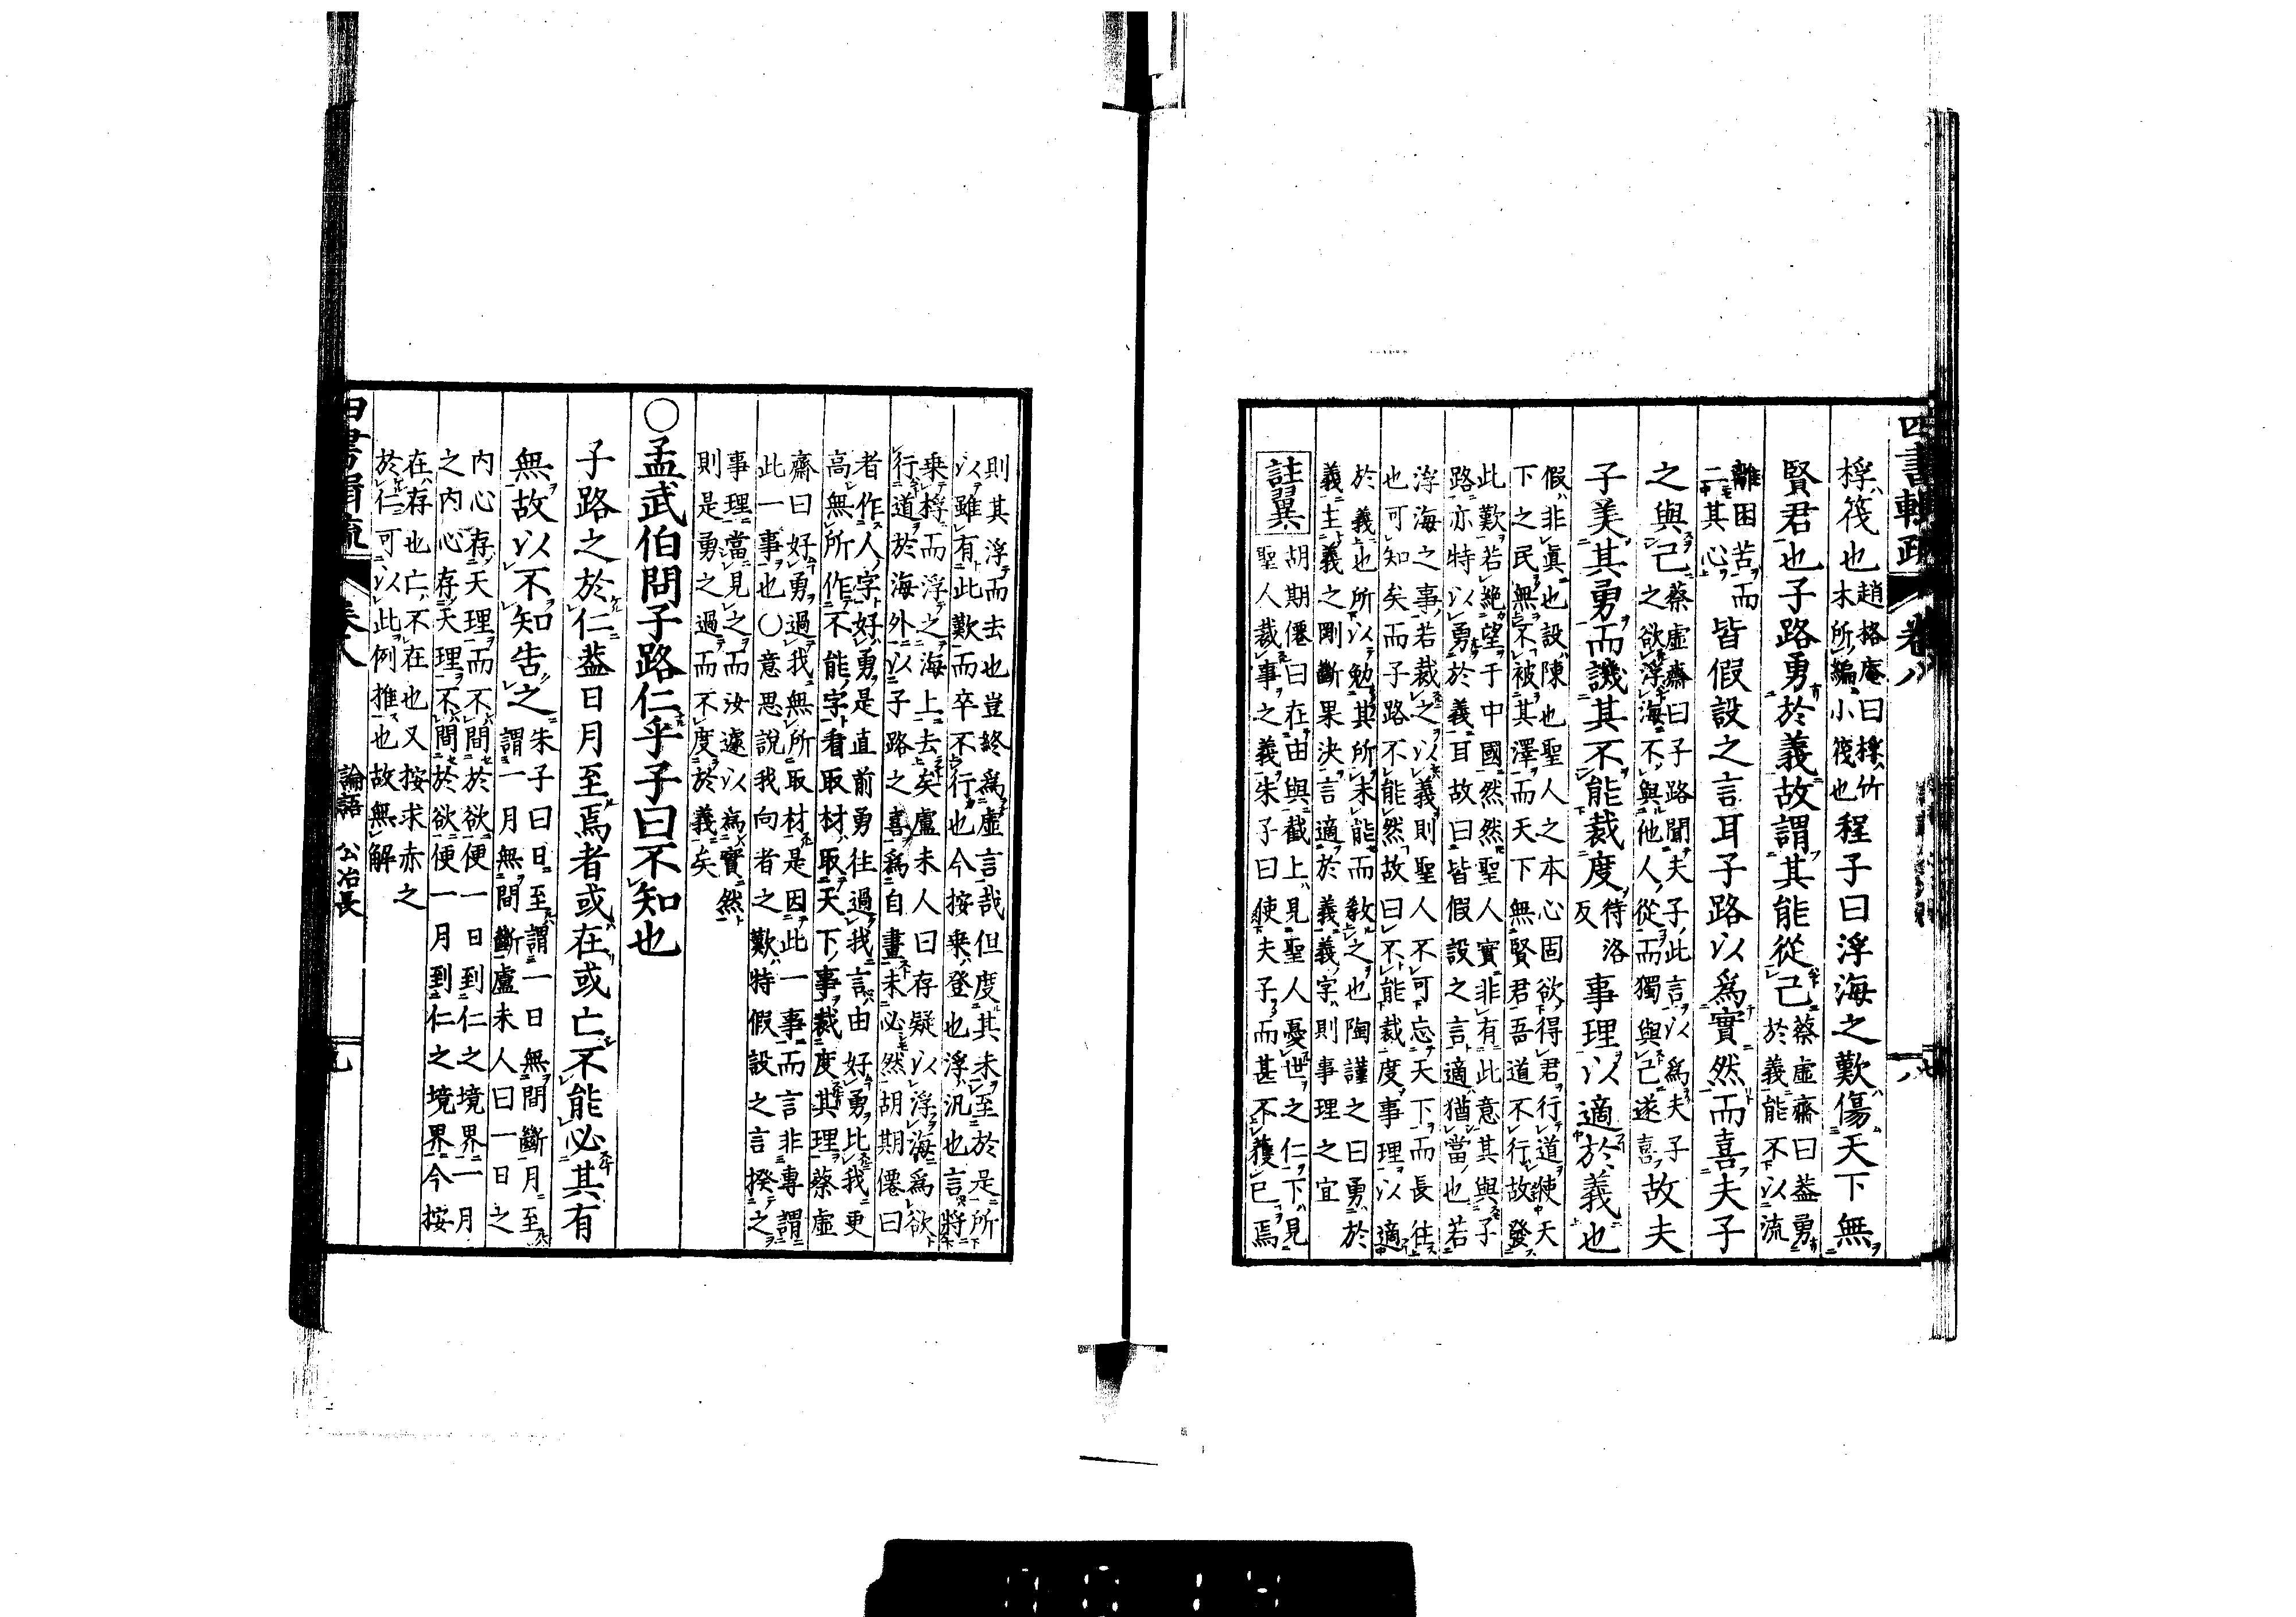 四書輯疏 卷八 八
桴筏也趙格庵曰桴竹
木所編小筏也程子曰浮海之歎傷天下無
賢君也子路勇於義故謂其能從己蔡虛齋曰蓋勇
於義能不以流
離困苦而
二其心皆假設之言耳子路以爲實然而喜夫子
之與己蔡虛齋曰子路聞夫子此言以爲夫子
之欲浮海不與他人從而獨與己遂喜故夫
子美其勇而譏其不能裁度待洛
反事理以適於義也
假非眞也設陳也聖人之本心固欲得君行道使天
下之民無不被其澤而天下無賢君吾道不行故發
此歎若絶望于中國然然聖人實非有此意其與子
路亦特以勇於義耳故曰皆假設之言適猶當也若
浮海之事若裁之以義則聖人不可忘天下而長往
也可知矣而子路不能然故曰不能裁度事理以適
於義也所以勉其所未能而敎之也陶謹之曰勇於
義主義之剛斷果決言適於義義字則事理之宜
註翼
胡期僊曰在由與截上見聖人憂世之仁下見
聖人裁事之義朱子曰使夫子而甚不獲已焉
則其浮而去也豈終爲虛言哉但度其未至於是所
以雖有此歎而卒不行也今按乘登也浮汎也言將
乘桴而浮之海上去矣盧未人曰存疑以浮海爲欲
行道於海外以子路之喜爲自畫未必然胡期僊曰
者作人字好勇是直前勇往過我言由好勇比我更
高無所作不能字看取材取天下事裁度其理蔡虛
齋曰好勇過我無所取材是因此一事而言非專謂
此一事也〇意思說我向者之歎特假設之言揆之
事理當見之而汝遽以爲實然
則是勇之過而不度於義矣
〇孟武伯問子路仁乎子曰不知也
子路之於仁蓋日月至焉者或在或亡不能必其有
無故以不知告之朱子曰日至謂一日無間斷月至
謂一月無間斷盧未人曰一日之
內心存天理而不間於欲便一日到仁之境界一月
之內心存天理不間於欲便一月到仁之境界今按
在存也亡不在也又按求赤之
於仁可以此例推也故無解
四書輯疏 卷八 論語 公冶長 九